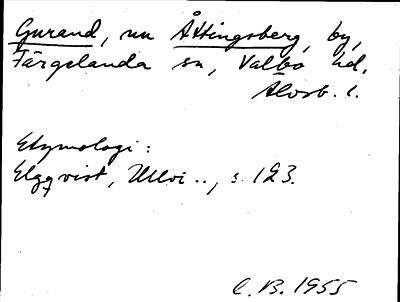 Gurand, nu Åttingsberg, by,
Färgelanda sn, Valbo hd,
Älvsb. l.
Etymologi:
Elgqvist, Ullvi.., s. 123.
C.B. 1955